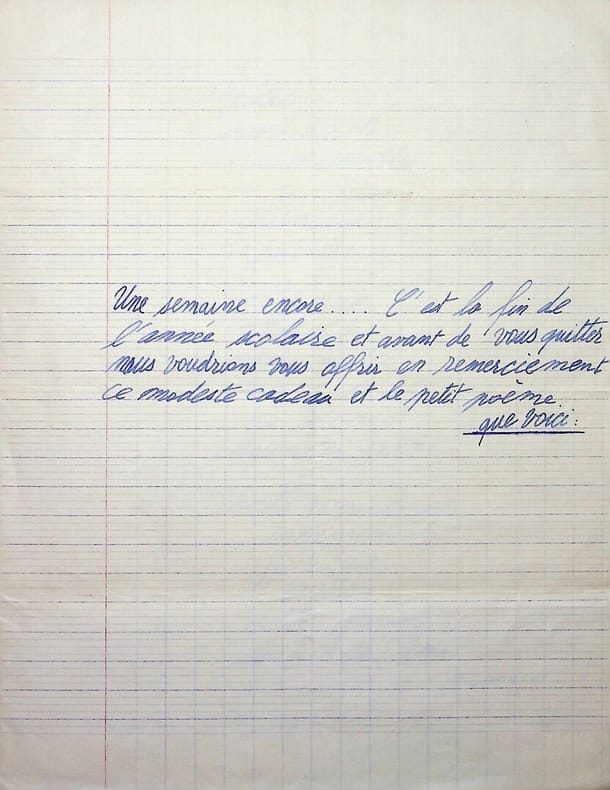 Une semaine encore.... C'est la fin de
l'année scolaire et avant de vous quitter
nous voudrions vous offrir en remerciement
ce modeste cadeau et le petit poème
que voici :